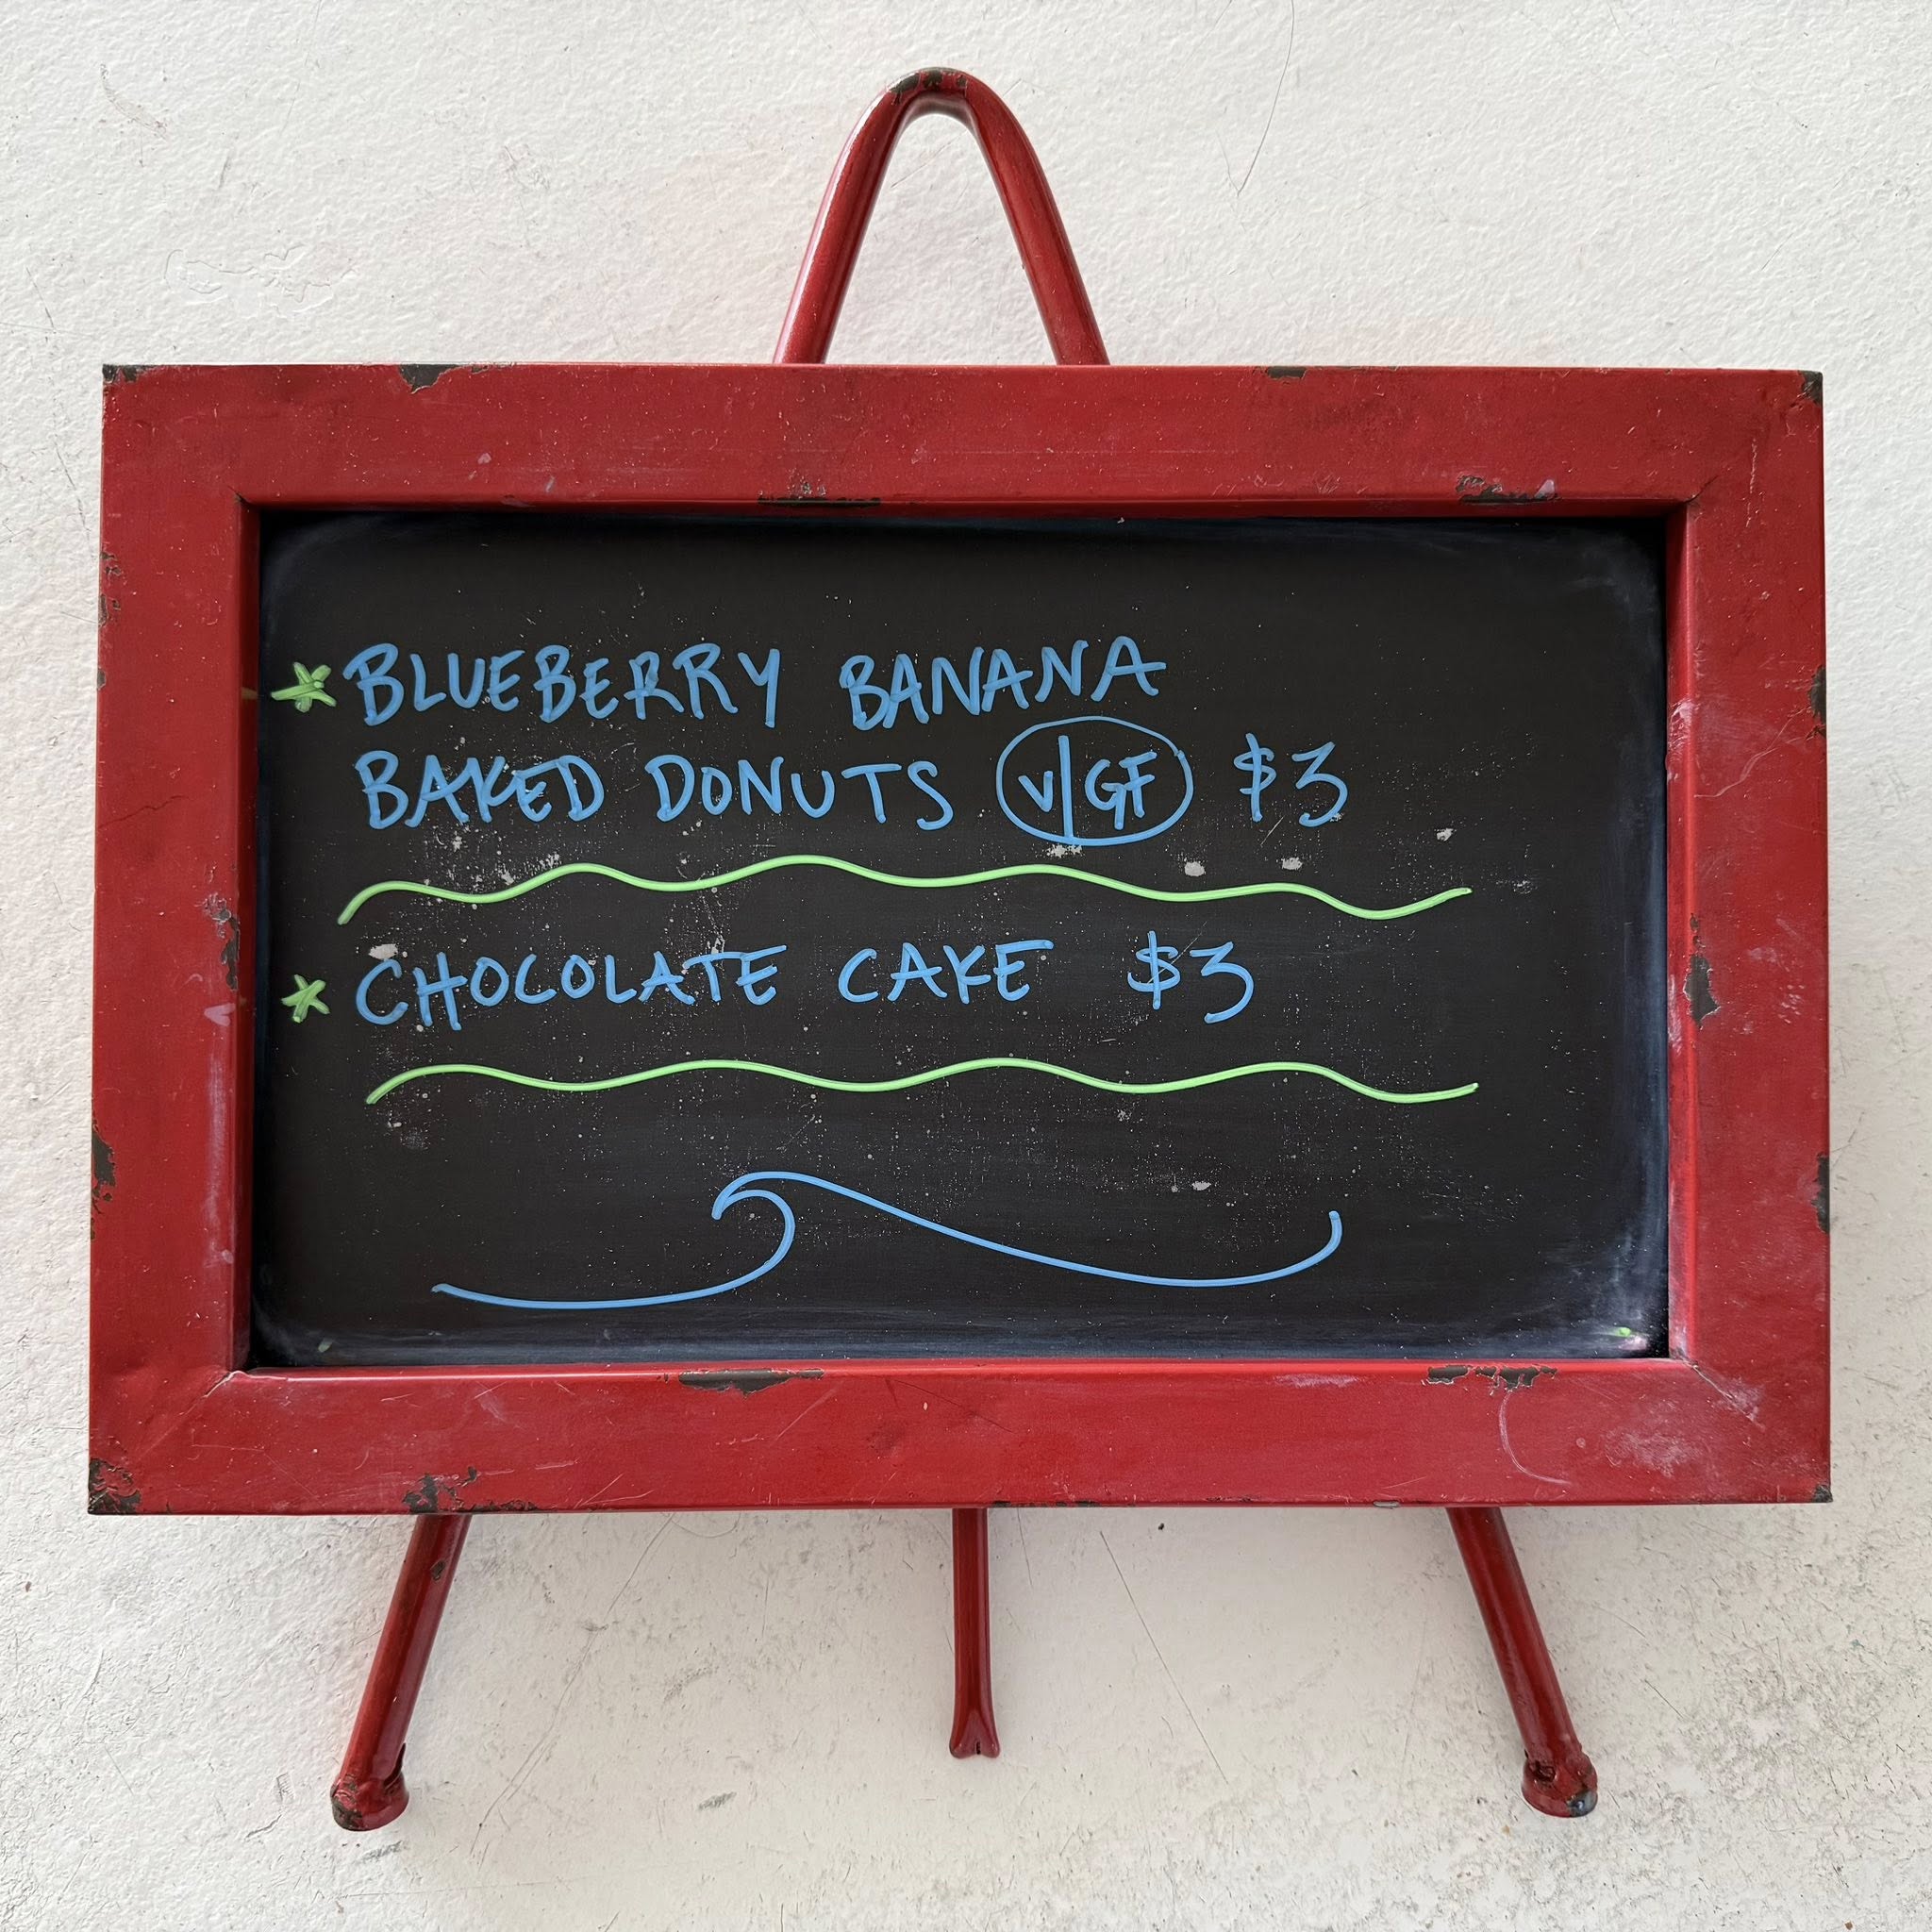 * BLUEBERRY BANANA
BAKED DONUTS V|GF $3
* CHOCOLATE CAKE $3